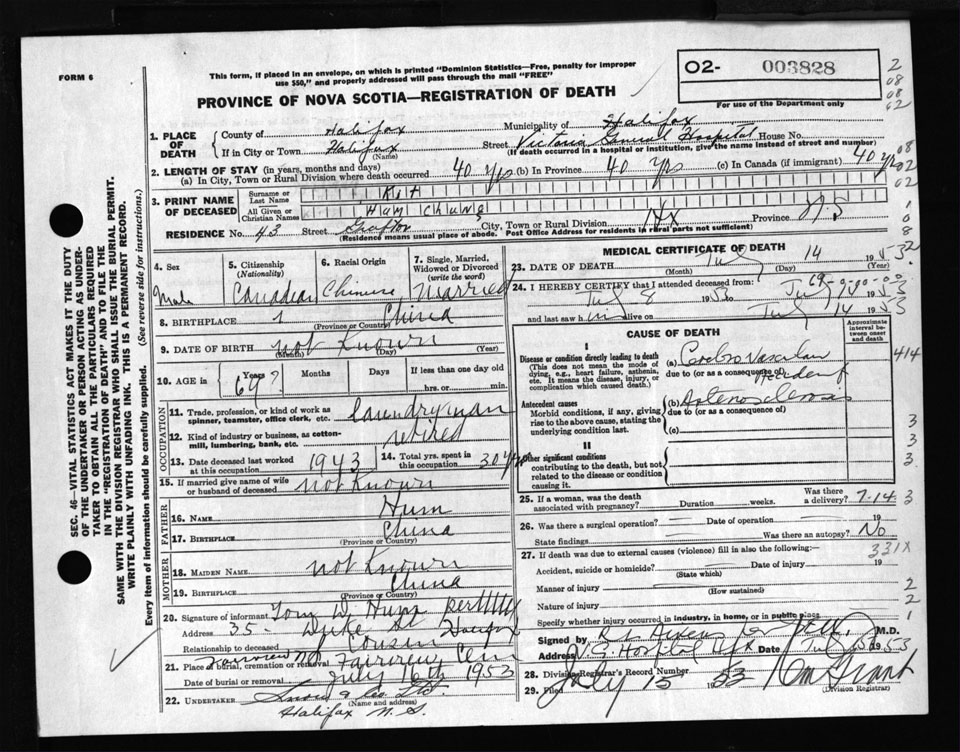 FORM 6
This form, if placed in an envelope, on which is printed "Dominion Statistics—Free, penalty for improper
use $50," and properly addressed will pass through the mail "FREE"
O2- 003828
For use of the Department only
2
08
08
02
PROVINCE OF NOVA SCOTIA—REGISTRATION OF DEATH
1. PLACE OF DEATH
County of Halifax Municipality of Halifax
If in City or Town Halifax (Name) Street Victoria General Hospital House No.
(If death occurred in a hospital or institution, give the name instead of street and number)
2. LENGTH OF STAY (in years, months and days)
(a) In City, Town or Rural Division where death occurred 40 yrs (b) In Province 40 yrs (c) In Canada (if immigrant) 40 yrs
3. PRINT NAME OF DECEASED
Surname or Last Name Kit
All Given or Christian Names Hum Chung
RESIDENCE No. 43 Street Grafton City, Town or Rural Division Hx Province N.S
(Residence means usual place of abode. Post Office Address for residents in rural parts not sufficient)
SEC. 46—VITAL STATISTICS ACT MAKES IT THE DUTY
OF THE UNDERTAKER OR PERSON ACTING AS UNDER-
TAKER TO OBTAIN ALL THE PARTICULARS REQUIRED
IN THE "REGISTRATION OF DEATH" AND TO FILE THE
SAME WITH THE DIVISION REGISTRAR WHO SHALL ISSUE THE BURIAL PERMIT.
WRITE PLAINLY WITH UNFADING INK. THIS IS A PERMANENT RECORD.
Every item of information should be carefully supplied. (See reverse side for instructions.)
4. Sex Male
5. Citizenship (Nationality) Canadian
6. Racial Origin Chinese
7. Single, Married, Widowed or Divorced (write the word) Married
8. BIRTHPLACE China
(Province or Country)
9. DATE OF BIRTH not Known
(Month) (Day) (Year)
10. AGE in Years 69? Months Days If less than one day old hrs. or min.
OCCUPATION
11. Trade, profession, or kind of work as spinner, teamster, office clerk, etc. Laundryman
12. Kind of industry or business, as cotton-mill, lumbering, bank, etc. retired
13. Date deceased last worked at this occupation 1943
14. Total yrs. spent in this occupation 30 yrs
15. If married give name of wife or husband of deceased not Known
FATHER
16. NAME Hum
17. BIRTHPLACE China
(Province or Country)
MOTHER
18. MAIDEN NAME not Known
19. BIRTHPLACE China
(Province or Country)
20. Signature of informant Tom W. Hum
Address 35 Duke St Halifax
Relationship to deceased Cousin
21. Place of burial, cremation or removal Fairview Cem
Date of burial or removal July 16th 1953
22. UNDERTAKER Snow & Co. Ltd
(Name and address)
Halifax N. S.
MEDICAL CERTIFICATE OF DEATH
23. DATE OF DEATH July 14 1953
(Month) (Day) (Year)
24. I HEREBY CERTIFY that I attended deceased from:
July 8 1953 to July 1953
and last saw him alive on July 14 1953
CAUSE OF DEATH
Approximate interval between onset and death
I
Disease or condition directly leading to death
(This does not mean the mode of dying, e.g., heart failure, asthenia, etc. It means the disease, injury, or complication which caused death.)
(a) Cerebro Vascular Accident
due to (or as a consequence of)
Antecedent causes
Morbid conditions, if any, giving rise to the above cause, stating the underlying condition last.
(b) Arteriosclerosis
due to (or as a consequence of)
(c)
II
Other significant conditions
contributing to the death, but not related to the disease or condition causing it.
25. If a woman, was the death associated with pregnancy? Duration weeks. Was there a delivery?
7-14 3
26. Was there a surgical operation? Date of operation 19
State findings Was there an autopsy? No
27. If death was due to external causes (violence) fill in also the following:—
331X
Accident, suicide or homicide? Date of injury 19
(State which)
Manner of injury
(How sustained)
Nature of injury
Specify whether injury occurred in industry, in home, or in public place
Signed by M.D.
Address V.G. Hospital Hfx Date July 15 1953
28. Division Registrar's Record Number
29. Filed July 15 1953
(Division Registrar)